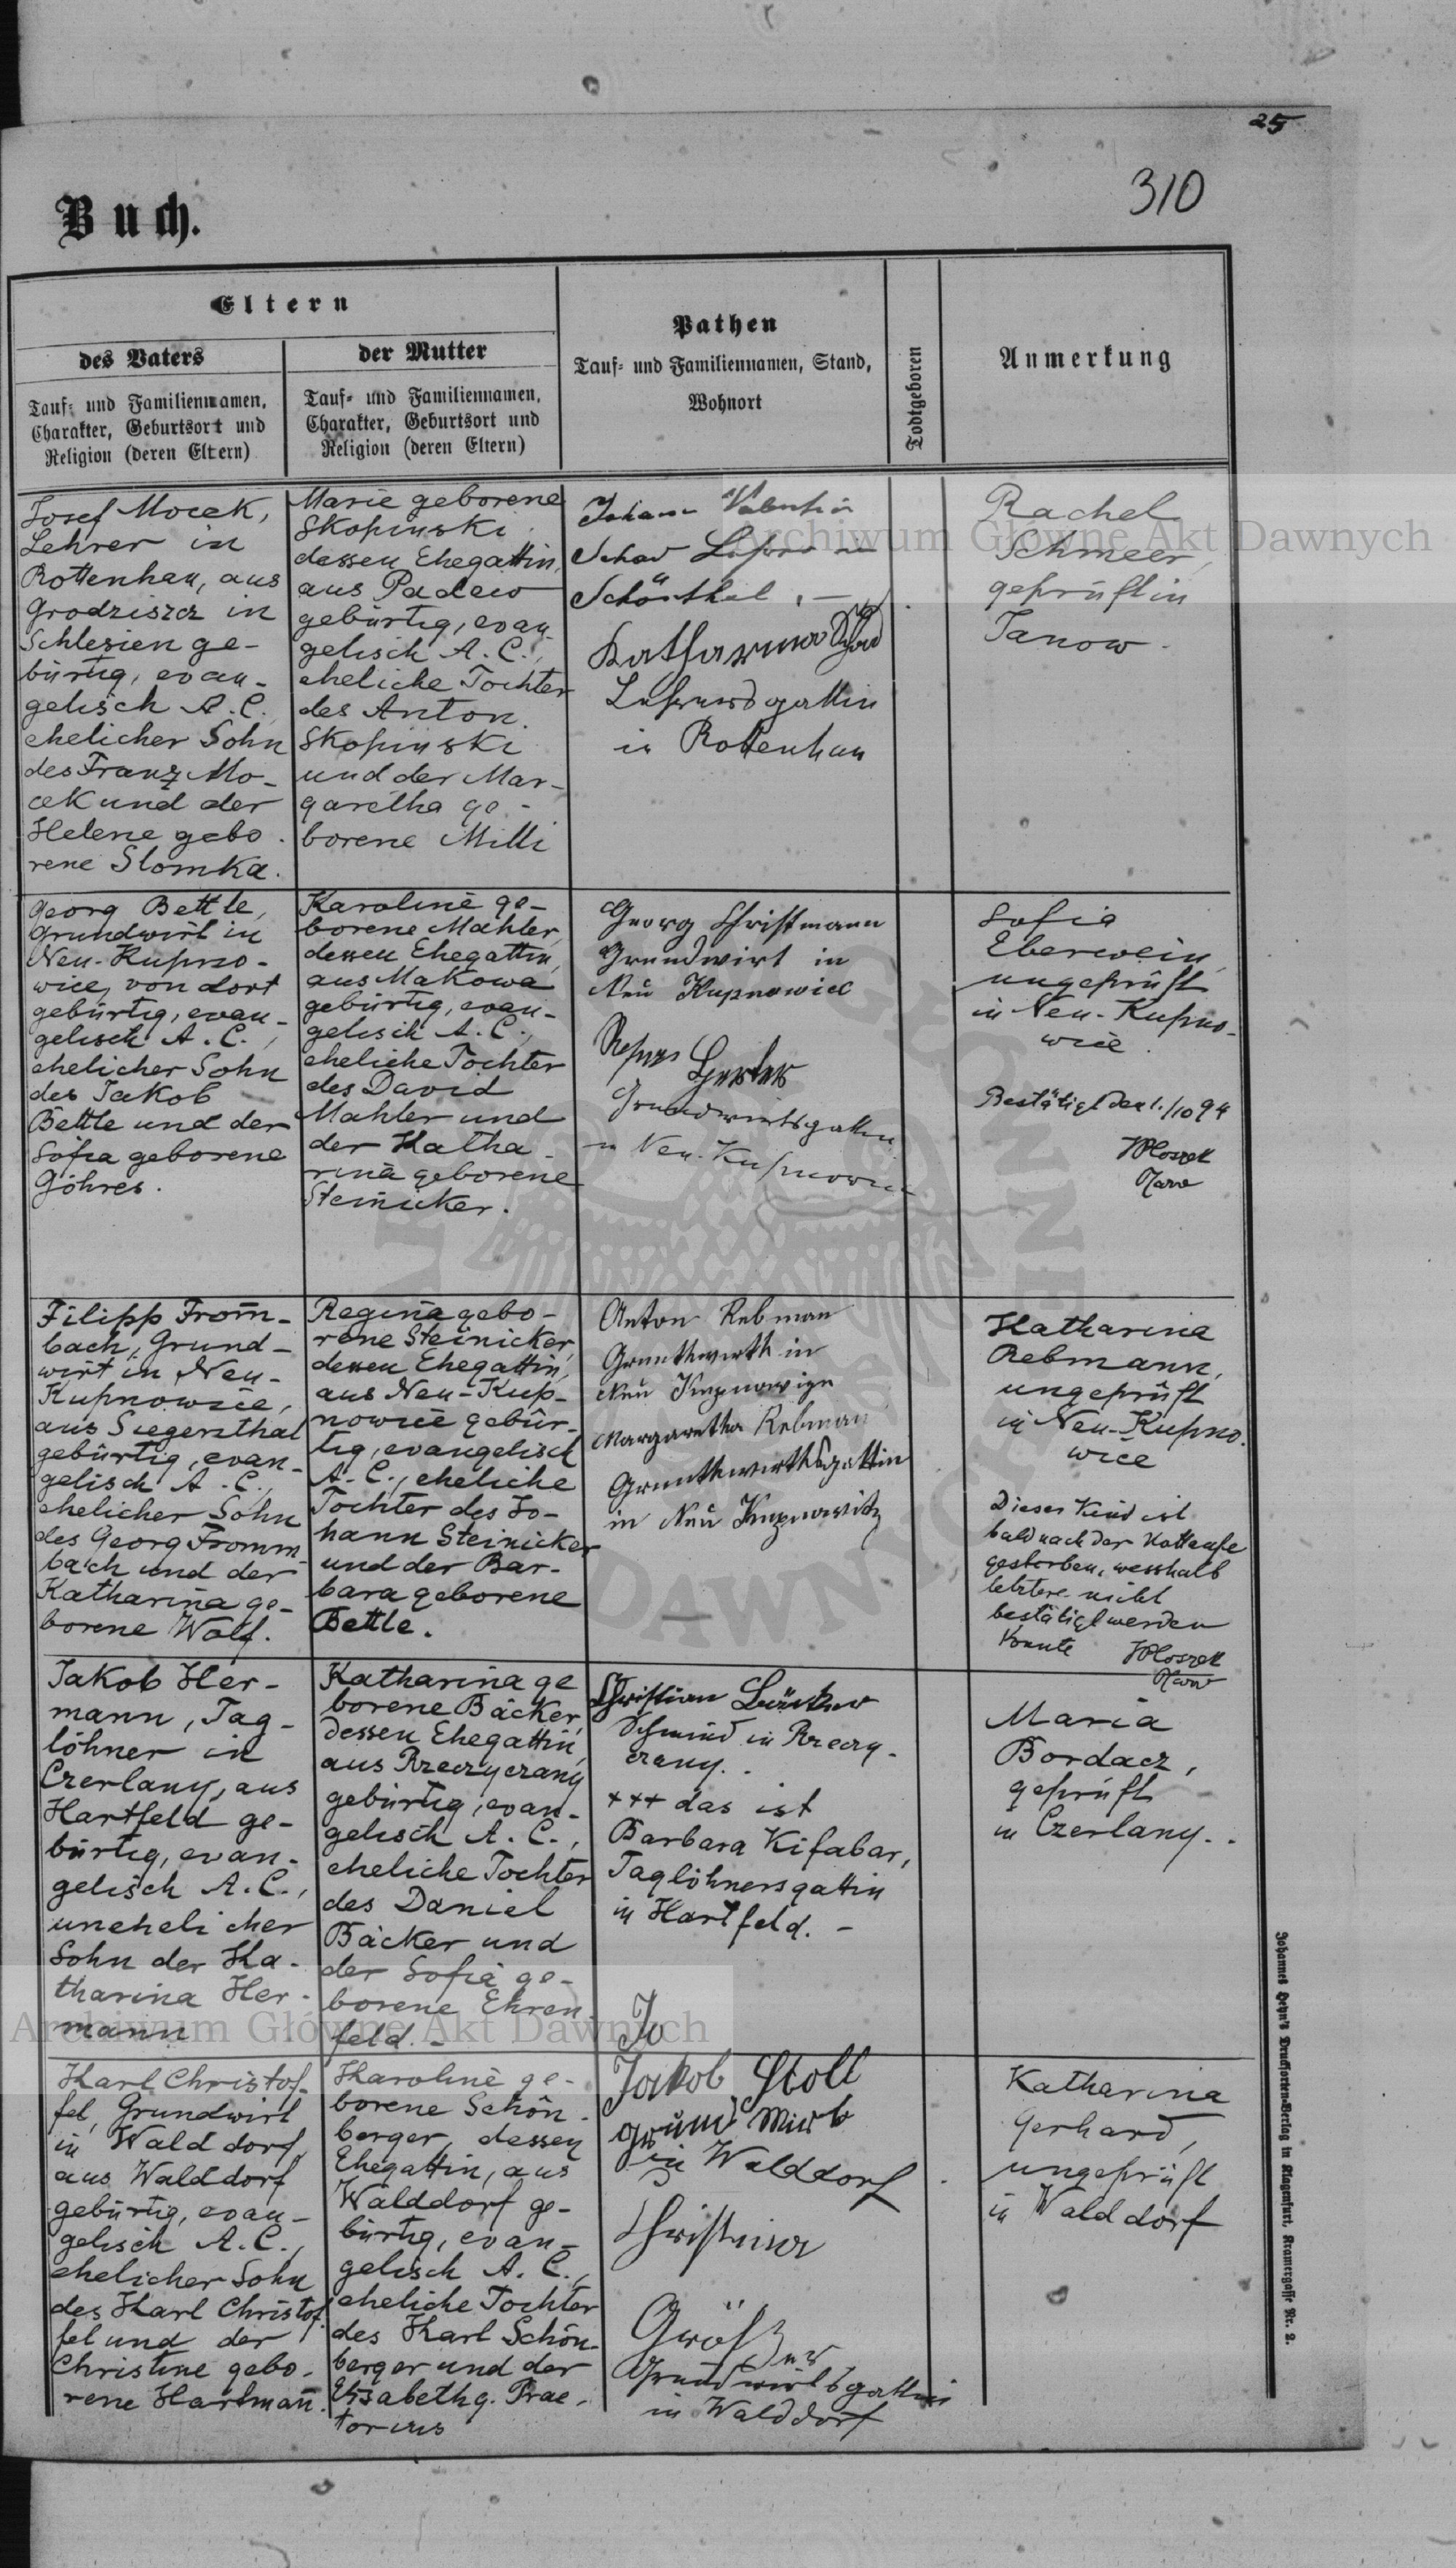 25
310
Buch.
Eltern
des Vaters
Tauf- und Familiennamen,
Charakter, Geburtsort und
Religion (deren Eltern)
der Mutter
Tauf- und Familiennamen,
Charakter, Geburtsort und
Religion (deren Eltern)
Pathen
Tauf- und Familiennamen, Stand,
Wohnort
Todtgeboren
Anmerkung
Josef Mocek,
Lehrer in
Rottenhan, aus
Grodziszcz in
Schlesien ge-
bürtig, evan-
gelisch A. C.
ehelicher Sohn
des Franz Mo-
cek und der
Helene gebo-
rene Slomka.
Marie geborene
Skopinski
dessen Ehegattin,
aus Padew
gebürtig, evan-
gelisch A. C.,
eheliche Tochter
des Anton
Skopinski
und der Mar-
garetha ge-
borene Milli
Johann Valentin
Schad Lehrer in
Schönthal.
Katharina Schad
Lehrersgattin
in Rottenhan
Rachel
Schmeer,
geprüft in
Janow.
Georg Bettle,
Grundwirt in
Neu-Kupno-
wice, von dort
gebürtig, evan-
gelisch A. C.,
ehelicher Sohn
des Jakob
Bettle und der
Sofia geborene
Göhres.
Karoline ge-
borene Mahler,
dessen Ehegattin,
aus Makowa
gebürtig, evan-
gelisch A. C.,
eheliche Tochter
des David
Mahler und
der Katha-
rina geborene
Steinicker.
Georg Christmann
Grundwirt in
Neu Kupnowice
Gerber
Grundwirtsgattin
in Neu-Kupnowice
Sofia
Eberwein,
ungeprüft
in Neu-Kupno-
wice.
Bestätigt den 1./10 94
Filipp From-
bach, Grund-
wirt in Neu-
Kupnowice,
aus Siegenthal
gebürtig, evan-
gelisch A. C.,
ehelicher Sohn
des Georg Fromm-
bach und der
Katharina ge-
borene Wolf.
Regina gebo-
rene Steinicker,
dessen Ehegattin,
aus Neu-Kup-
nowice gebür-
tig, evangelisch
A. C., eheliche
Tochter des Jo-
hann Steinicker
und der Bar-
bara geborene
Bettle.
Anton Rebman
Grunthwirth in
Neu Kupnowize
Margaretha Rebman
Grunthwirthsgattin
in Neu Kupnowitz
Katharina
Rebmann,
ungeprüft
in Neu-Kupno-
wice
Dieses Kind ist
bald nach der Nottaufe
gestorben, wesshalb
letztere nicht
bestätigt werden
konnte
Jakob Her-
mann, Tag-
löhner in
Czerlany, aus
Hartfeld ge-
bürtig, evan-
gelisch A. C.,
unehelicher
Sohn der Ka-
tharina Her-
mann
Katharina ge
borene Bäcker,
dessen Ehegattin,
aus Rzeczyczany
gebürtig, evan-
gelisch A. C.,
eheliche Tochter
des Daniel
Bäcker und
der Sofia ge-
borene Ehren-
feld.-
Christian
Schmid in Rzeczy-
czany.
+++ das ist
Barbara Kifabar,
Taglöhnersgattin
in Hartfeld.-
Maria
Bordacz,
geprüft
in Czerlany.
Karl Christof-
fel, Grundwirt
in Walddorf,
aus Walddorf
gebürtig, evan-
gelisch A. C.,
ehelicher Sohn
des Karl Christof-
fel und der
Christine gebo-
rene Hartmann.
Karoline ge-
borene Schön-
berger, dessen
Ehegattin, aus
Walddorf ge-
bürtig, evan-
gelisch A. C.,
eheliche Tochter
des Karl Schön-
berger und der
Elisabeth g. Prae-
torius
Jo
Jakob Stoll
Grund Wirt
in Walddorf
Christina
Grundwirtsgattin
in Walddorf
Katharina
Gerhard,
ungeprüft
in Walddorf
Johannes Heyn's Drucksorten-Verlag in Klagenfurt, Kramergasse Nr. 2.
Archiwum Główne Akt Dawnych
Archiwum Główne Akt Dawnych